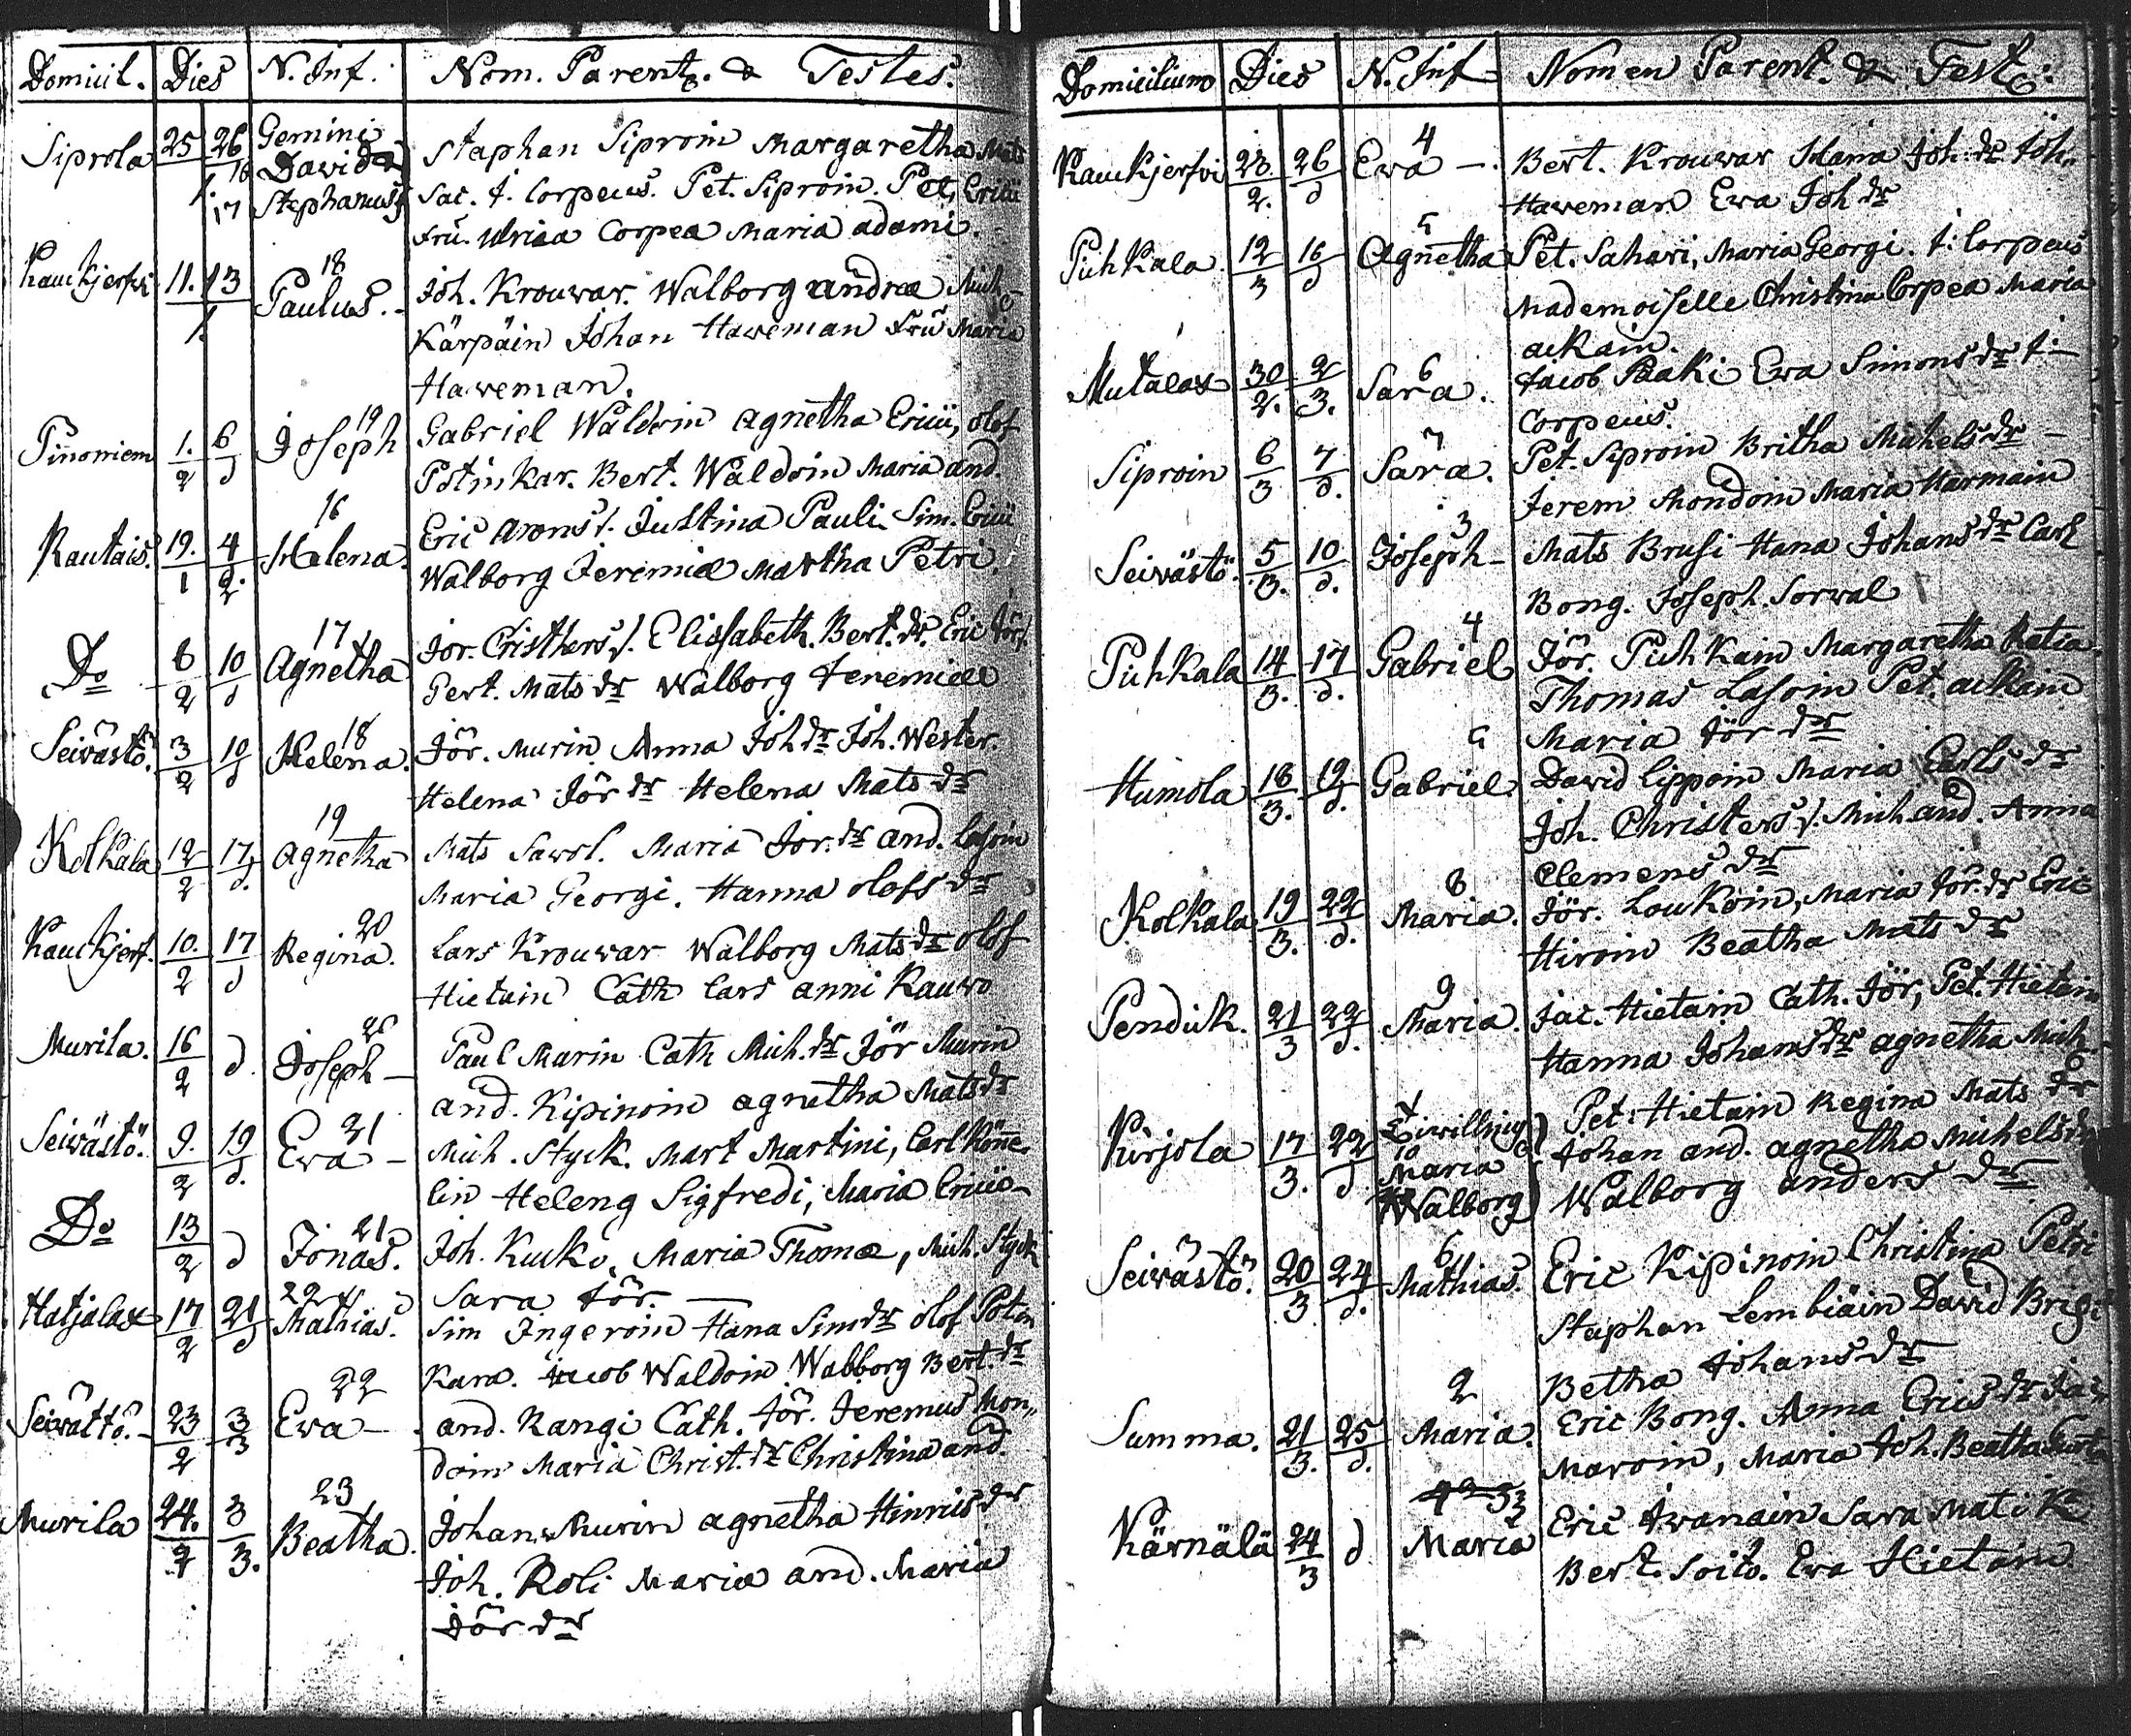 Domicil. Dies N. Inf. Nom. Parent. & Testes.
Siprola 25 26 Gemini Staphan Siproin Margaretha Mats
16 David Sac. t. Corpeus. Pet. Siproin. Pet. Ericii
1. 17 Stephanus Fru. Ulrica Corpea Maria adami.
Kauckjerfvi 11. 13 18 Joh. Krouwar. Walborg andreæ Mich
1. Paulus. Kärpäin Johan Haweman Fru Maria
Haweman.
Pinoniem 1. 6 19 Joseph Gabriel Waldoin Agnetha Ericii, olof
2 d Potinkar. Bert. Waldoin Maria and.
Rautais. 19. 4 16 Helena. Eric arons/. Justina Pauli. Sim. Ericii
1 2. Walborg Jeremiæ Martha Petri.
Do 6 10 17 Agnetha Jör. Cristhers/. Elissabeth. Bert. dr. Eric Jörs/.
2 d Gert. Mats dr Walborg Jeremiæ
Seivästö. 3 10 18 Helena. Jör. Murin Anna Joh dr Joh. Wester.
2 d Helena Jör dr Helena Mats dr
Kolkala 12 17 19 Agnetha Mats Sawol. Maria Jör. dr and. Lasoin
2 d. Maria Georgi. Hanna olofs dr
Kauckjerf. 10. 17 20 Regina. Lars Krouwar Walborg Mats dr olof
2 d Hietain Cath Lars anni Rauwo
Murila. 16 d. 20 Joseph - Paul Marin Cath Mich. dr Jör Murin
2 and. Kipinoin agnetha Mats dr
Seivästö. 9. 19 21 Ewa - Mich. Styck. Mart Martini, Carl Könne
2 d. lin Heleng Sigfredi, Maria Ericii -
Do 13 d 21 Jonas. Joh. Kucko, Maria Thomæ, Mich. Styck
2 Sara Jör.
Hatjalax 17 21 22 Mathias. Sim Ingeroin Hana Sim dr olof Potin
2 d Kara. Jacob Waldoin Walborg Bert. dr
Seivättö. - 23 3 22 Ewa - and. Rangi Cath. Jör. Jeremus Mon,,
2 3 doin Maria Christ. dr Christina and.
Murila 24. 3 23 Beatha. Johan Murin agnetha Hinrics dr
2 3. Joh. Roli Maria and. Maria
Jör dr
Domicilium Dies N. Inf Nomen Parent. & Test:
Kauckjerfvi 23. 26 4 Ewa - Bert. Krouwar Maria Joh. dr Joh.
2. d Haweman Ewa Joh dr
Puhkala. 12 16 5 Agnetha Pet. Sahari, Maria Georgi. t. Corpeus
3 d Mademoiselle Christina Corpea Maria
ackain.
Mutalax 30 2 6 Sara. Jacob Paaki Ewa Simons dr t-
2. 3. Corpeus.
Siproin 6 7 7 Sara. Pet. Siproin Britha Michels dr -
3 d. Jerem Mondoin Maria Harmain
Seivästö. 5 10 3 Joseph - Mats Brusi Hana Johans dr Carl
3. d. Bong. Joseph. Sorwal
Puhkala 14 17 4 Gabriel Jör. Puhkain Margaretha Ratia
3. d. Thomas Lasoin Pet. ackain
Maria Jör dr
Humola 18 19 5 Gabriel. David Lippoin Maria Carls dr
3. d. Joh. Christers/. Mich. and. Anna
Clemens dr
Kolkala 19 22 8 Maria. Jör. Loukoin, Maria Jör. dr Eric
3. d. Hiroin Beatha Mats dr
Penduk. 21 22 9 Maria. Jac. Hietain Cath. Jör, Pet. Hietain
3 d. Hanna Johans dr agnetha Mich
Kirjola 17 22 Tiwilling Pet. Hietain Regina Mats dr
3. d. 10 Maria Johan and. agnetha Michels dr
Walborg Walborg anders dr
Seivästö. 20 24 6 Mathias. Eric Kipinoin Christina Petri
3 d. Staphan Lembiäin David Brigi
Betha Johans dr
Summa. 21 25 2 Maria. Eric Bong. Anna Erics dr Jac,
3. d. Maroin, Maria Joh. Beatha
Kärnälä 24 d 3 Maria Eric Iwanain Sara Mati
3 Bert. Soito. Ewa Hietain